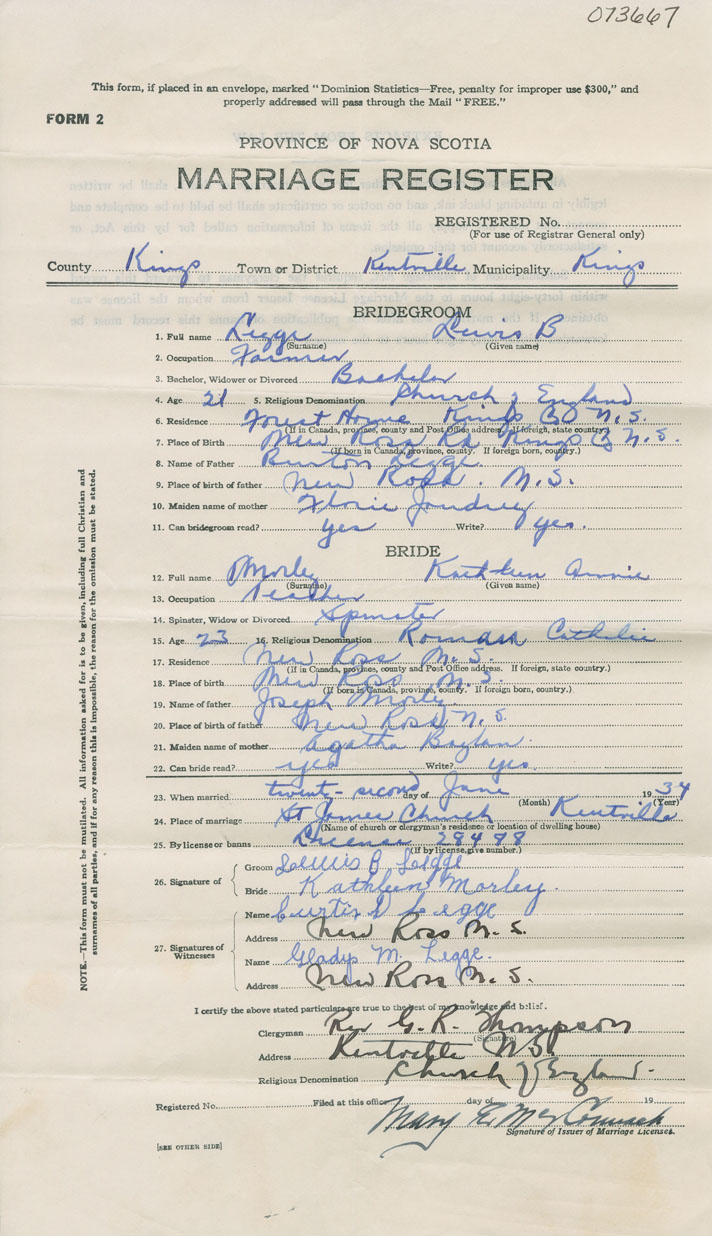 073667
This form, if placed in an envelope, marked "Dominion Statistics—Free, penalty for improper use $300," and
properly addressed will pass through the Mail "FREE."
FORM 2
PROVINCE OF NOVA SCOTIA
MARRIAGE REGISTER
REGISTERED No.
(For use of Registrar General only)
County Kings Town or District Kentville Municipality Kings
BRIDEGROOM
1. Full name Legge Lewis B
(Surname) (Given name)
2. Occupation Farmer
3. Bachelor, Widower or Divorced Bachelor
4. Age 21 5. Religious Denomination Church of England
6. Residence Forest Home Kings Co N.S.
(If in Canada, province, county and Post Office address. If foreign, state country.)
7. Place of Birth New Ross Rd Kings Co N.S.
(If born in Canada, province, county. If foreign born, country.)
8. Name of Father Burton Legge
9. Place of birth of father New Ross. N.S.
10. Maiden name of mother Florie Joudrey
11. Can bridegroom read? yes Write? yes.
BRIDE
12. Full name Morley Kathleen Annie
(Surname) (Given name)
13. Occupation Teacher
14. Spinster, Widow or Divorced Spinster
15. Age 23 16. Religious Denomination Roman Catholic
17. Residence New Ross N.S.
(If in Canada, province, county and Post Office address. If foreign, state country.)
18. Place of birth New Ross N.S.
(If born in Canada, province, county. If foreign born, country.)
19. Name of father Joseph Morley
20. Place of birth of father New Ross, N.S.
21. Maiden name of mother Agatha Boylan
22. Can bride read? yes Write? yes.
23. When married twenty-second day of June 1934
(Month) (Year)
24. Place of marriage St James Church Kentville
(Name of church or clergyman's residence or location of dwelling house)
25. By license or banns License 28488
(If by license, give number.)
26. Signature of
Groom Lewis B Legge
Bride Kathleen Morley.
27. Signatures of Witnesses
Name Curtis D Legge
Address New Ross N.S.
Name Gladys M. Legge.
Address New Ross N.S.
I certify the above stated particulars are true to the best of my knowledge and belief.
Clergyman Rev G. R. Thompson
(Signature)
Address Kentville N.S.
Religious Denomination Church of England.
Registered No. Filed at this office day of 19
Mary E. McCormack
Signature of Issuer of Marriage Licenses.
[SEE OTHER SIDE]
NOTE.—This form must not be mutilated. All information asked for is to be given, including full Christian and
surnames of all parties, and if for any reason this is impossible, the reason for the omission must be stated.